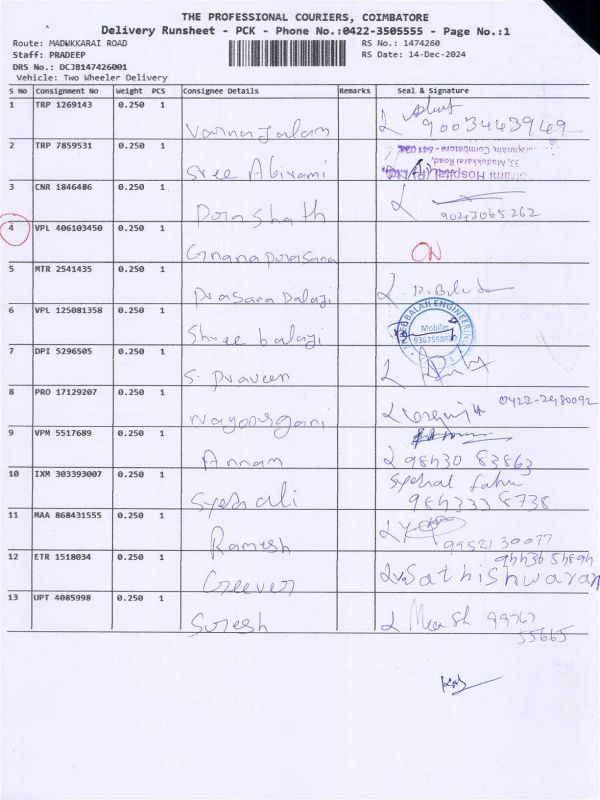 THE PROFESSIONAL COURIERS, COIMBATORE
Delivery Runsheet - PCK - Phone No.:0422-3505555 - Page No.:1
Route: MADUKKARAI ROAD
RS No.: 1474260
Staff: PRADEEP
RS Date: 14-Dec-2024
DRS No.: DCJB147426001
Vehicle: Two Wheeler Delivery
S No Consignment No Weight PCS Consignee Details Remarks Seal & Signature
1 TRP 1269143 0.250 1
9003443949
2 TRP 7859531 0.250 1 Sree Abirami
Hospital
33, Madukkarai Road,
Coimbatore - 641 024
3 CNR 1846486 0.250 1 Prashath
4 VPL 406103450 0.250 1 Gnana prasana ON
5 MTR 2541435 0.250 1 Prasana balaji
6 VPL 125081358 0.250 1 Shree balaji
BALAJI ENGINEERING
Mobile:
7 DPI 5296505 0.250 1 S. Praveen
8 PRO 17129207 0.250 1
0422-2980092
9 VPM 5517689 0.250 1 Annam
98430 83863
10 IXM 303393007 0.250 1 Syed ali
984333 8738
11 MAA 868431555 0.250 1 Ramesh
99521 30077
12 ETR 1518034 0.250 1 Greever
Sathishwaran
13 UPT 4085998 0.250 1 Suresh
99767
55665